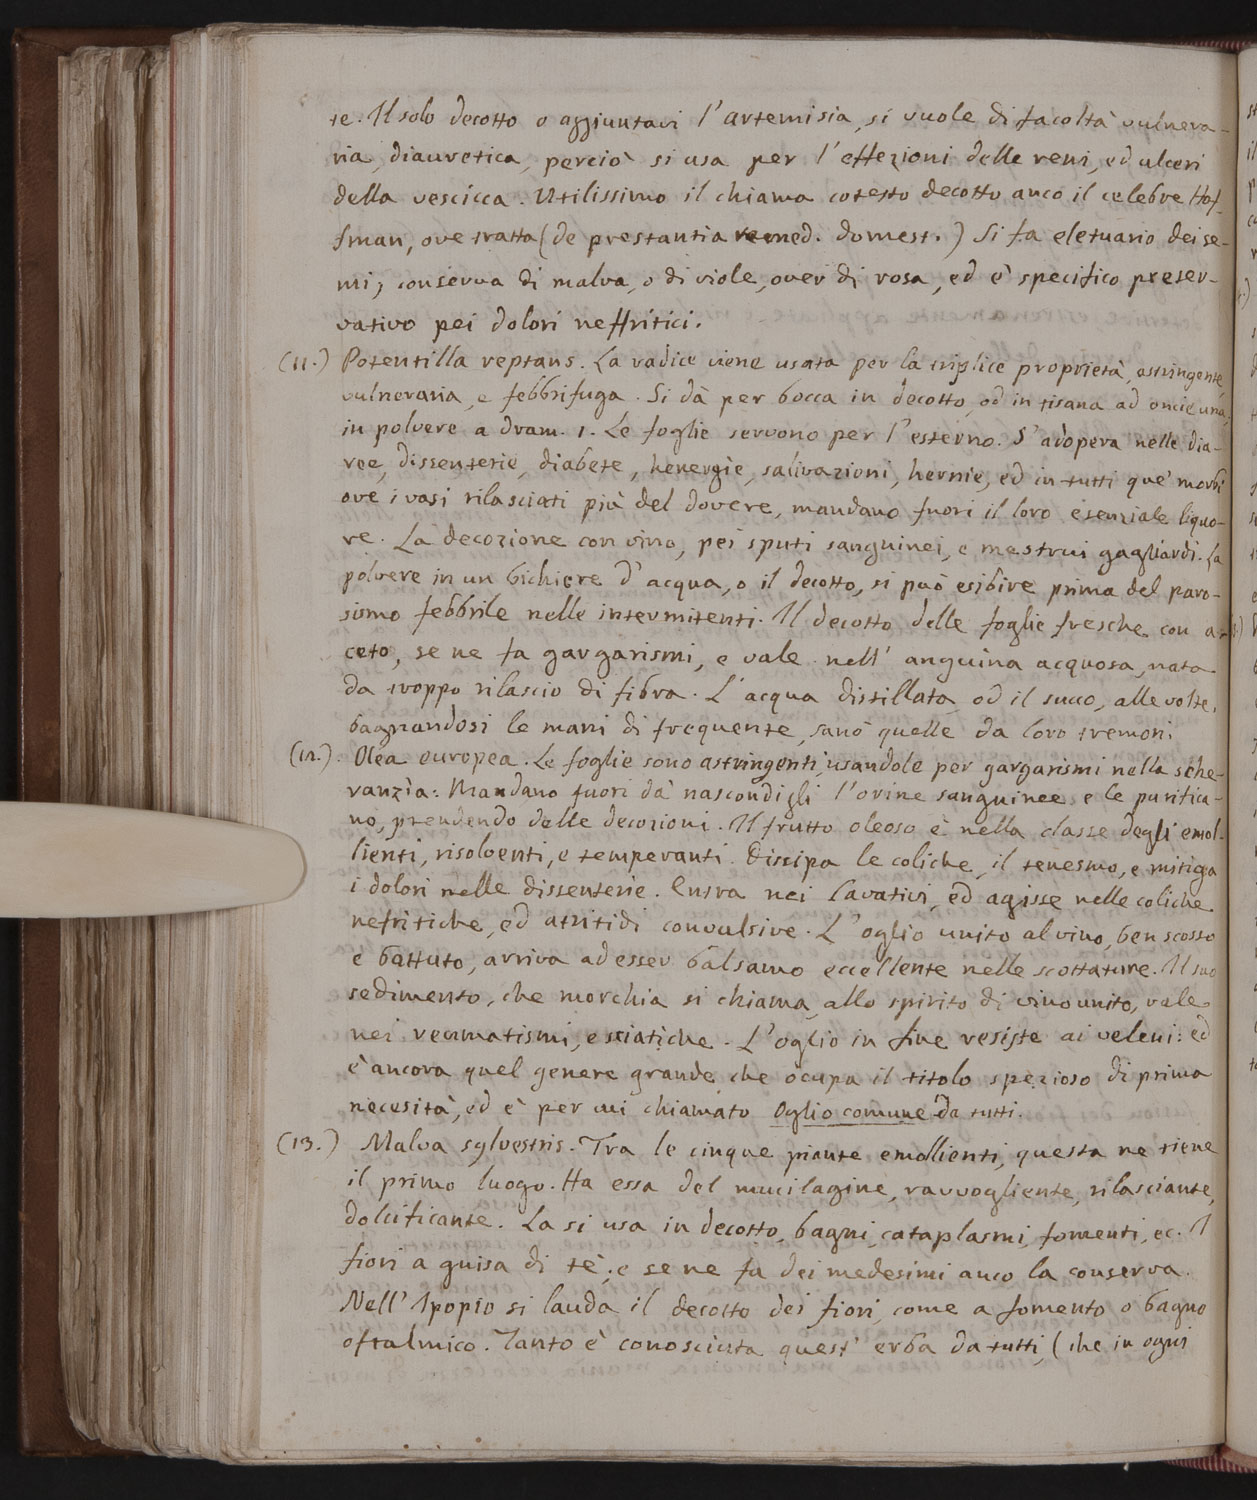 te. Il solo decotto o aggiuntavi l'artemisia, si vuole di facoltà vulnera-
ria, diauretica, perciò si usa per l'effezioni delle reni, ed ulceri
della vescicca. Utilissimo il chiama cotesto decotto anco il celebre Hof-
fman, ove tratta (de prestantia remed. domest.) Si fa eletuario dei se-
mi, conserva di malva, o di viole, over di rosa, ed è specifico preser-
vativo pei dolori neffritici.
(11.) Potentilla reptans. La radice viene usata per la triplice proprietà, astringente,
vulneraria, e febbrifuga. Si dà per bocca in decotto, od in tisana ad oncie una,
in polvere a dram. 1. Le foglie servono per l'esterno. S'adopera nelle dia-
ree, dissenterie, diabete, henergie, salivazioni, hernie, ed in tutti que' morbi
ove i vasi rilasciati più del dovere, mandano fuori il loro esenziale liquo-
re. La decozione con vino, pei sputi sanguinei, e mestrui gagliardi. La
polvere in un bichiere d'acqua, o il decotto, si può esibire prima del paro-
sismo febbrile nelle intermitenti. Il decotto delle foglie fresche con a-
ceto, se ne fa gargarismi, e vale nell' anguina acquosa, nata
da troppo rilascio di fibra. L'acqua distillata, od il succo, alle volte,
bagnandosi le mani di frequente, sanò quelle da loro tremori.
(12.) Olea europea. Le foglie sono astringenti, usandole per gargarismi nella sche-
ranzìa: Mandano fuori dà nascondigli l'orine sanguinee e le purifica-
no, prendendo delle decozioni. Il frutto oleoso è nella classe degli emol-
lienti, risolventi, e temperanti. Dissipa le coliche, il tenesmo, e mitiga
i dolori nelle dissenterie. Entra nei lavativi, ed agisse nelle coliche
nefritiche, ed atritidi convulsive. L'oglio unito al vino, ben scosso
e battuto, arriva ad esser balsamo eccellente nelle scottature. Il suo
sedimento, che morchia si chiama, allo spirito di vino unito, vale
nei reumatismi, e sciatiche. L'oglio in fine resiste ai veleni: ed
è ancora quel genere grande che ocupa il titolo spezioso di prima
necesità, ed è per cui chiamato Oglio comune da tutti.
(13.) Malva sylvestris. Tra le cinque piante emollienti, questa ne tiene
il primo luogo. Ha essa del mucilagine, ravvogliente, rilasciante,
dolcificante. La si usa in decotto, bagni, cataplasmi, fomenti, ec. I
fiori a guisa di tè, e se ne fa dei medesimi anco la conserva.
Nell' Ipopio si lauda il decotto dei fiori, come a fomento o bagno
oftalmico. Tanto è conosciuta quest' erba da tutti, (che in ogni